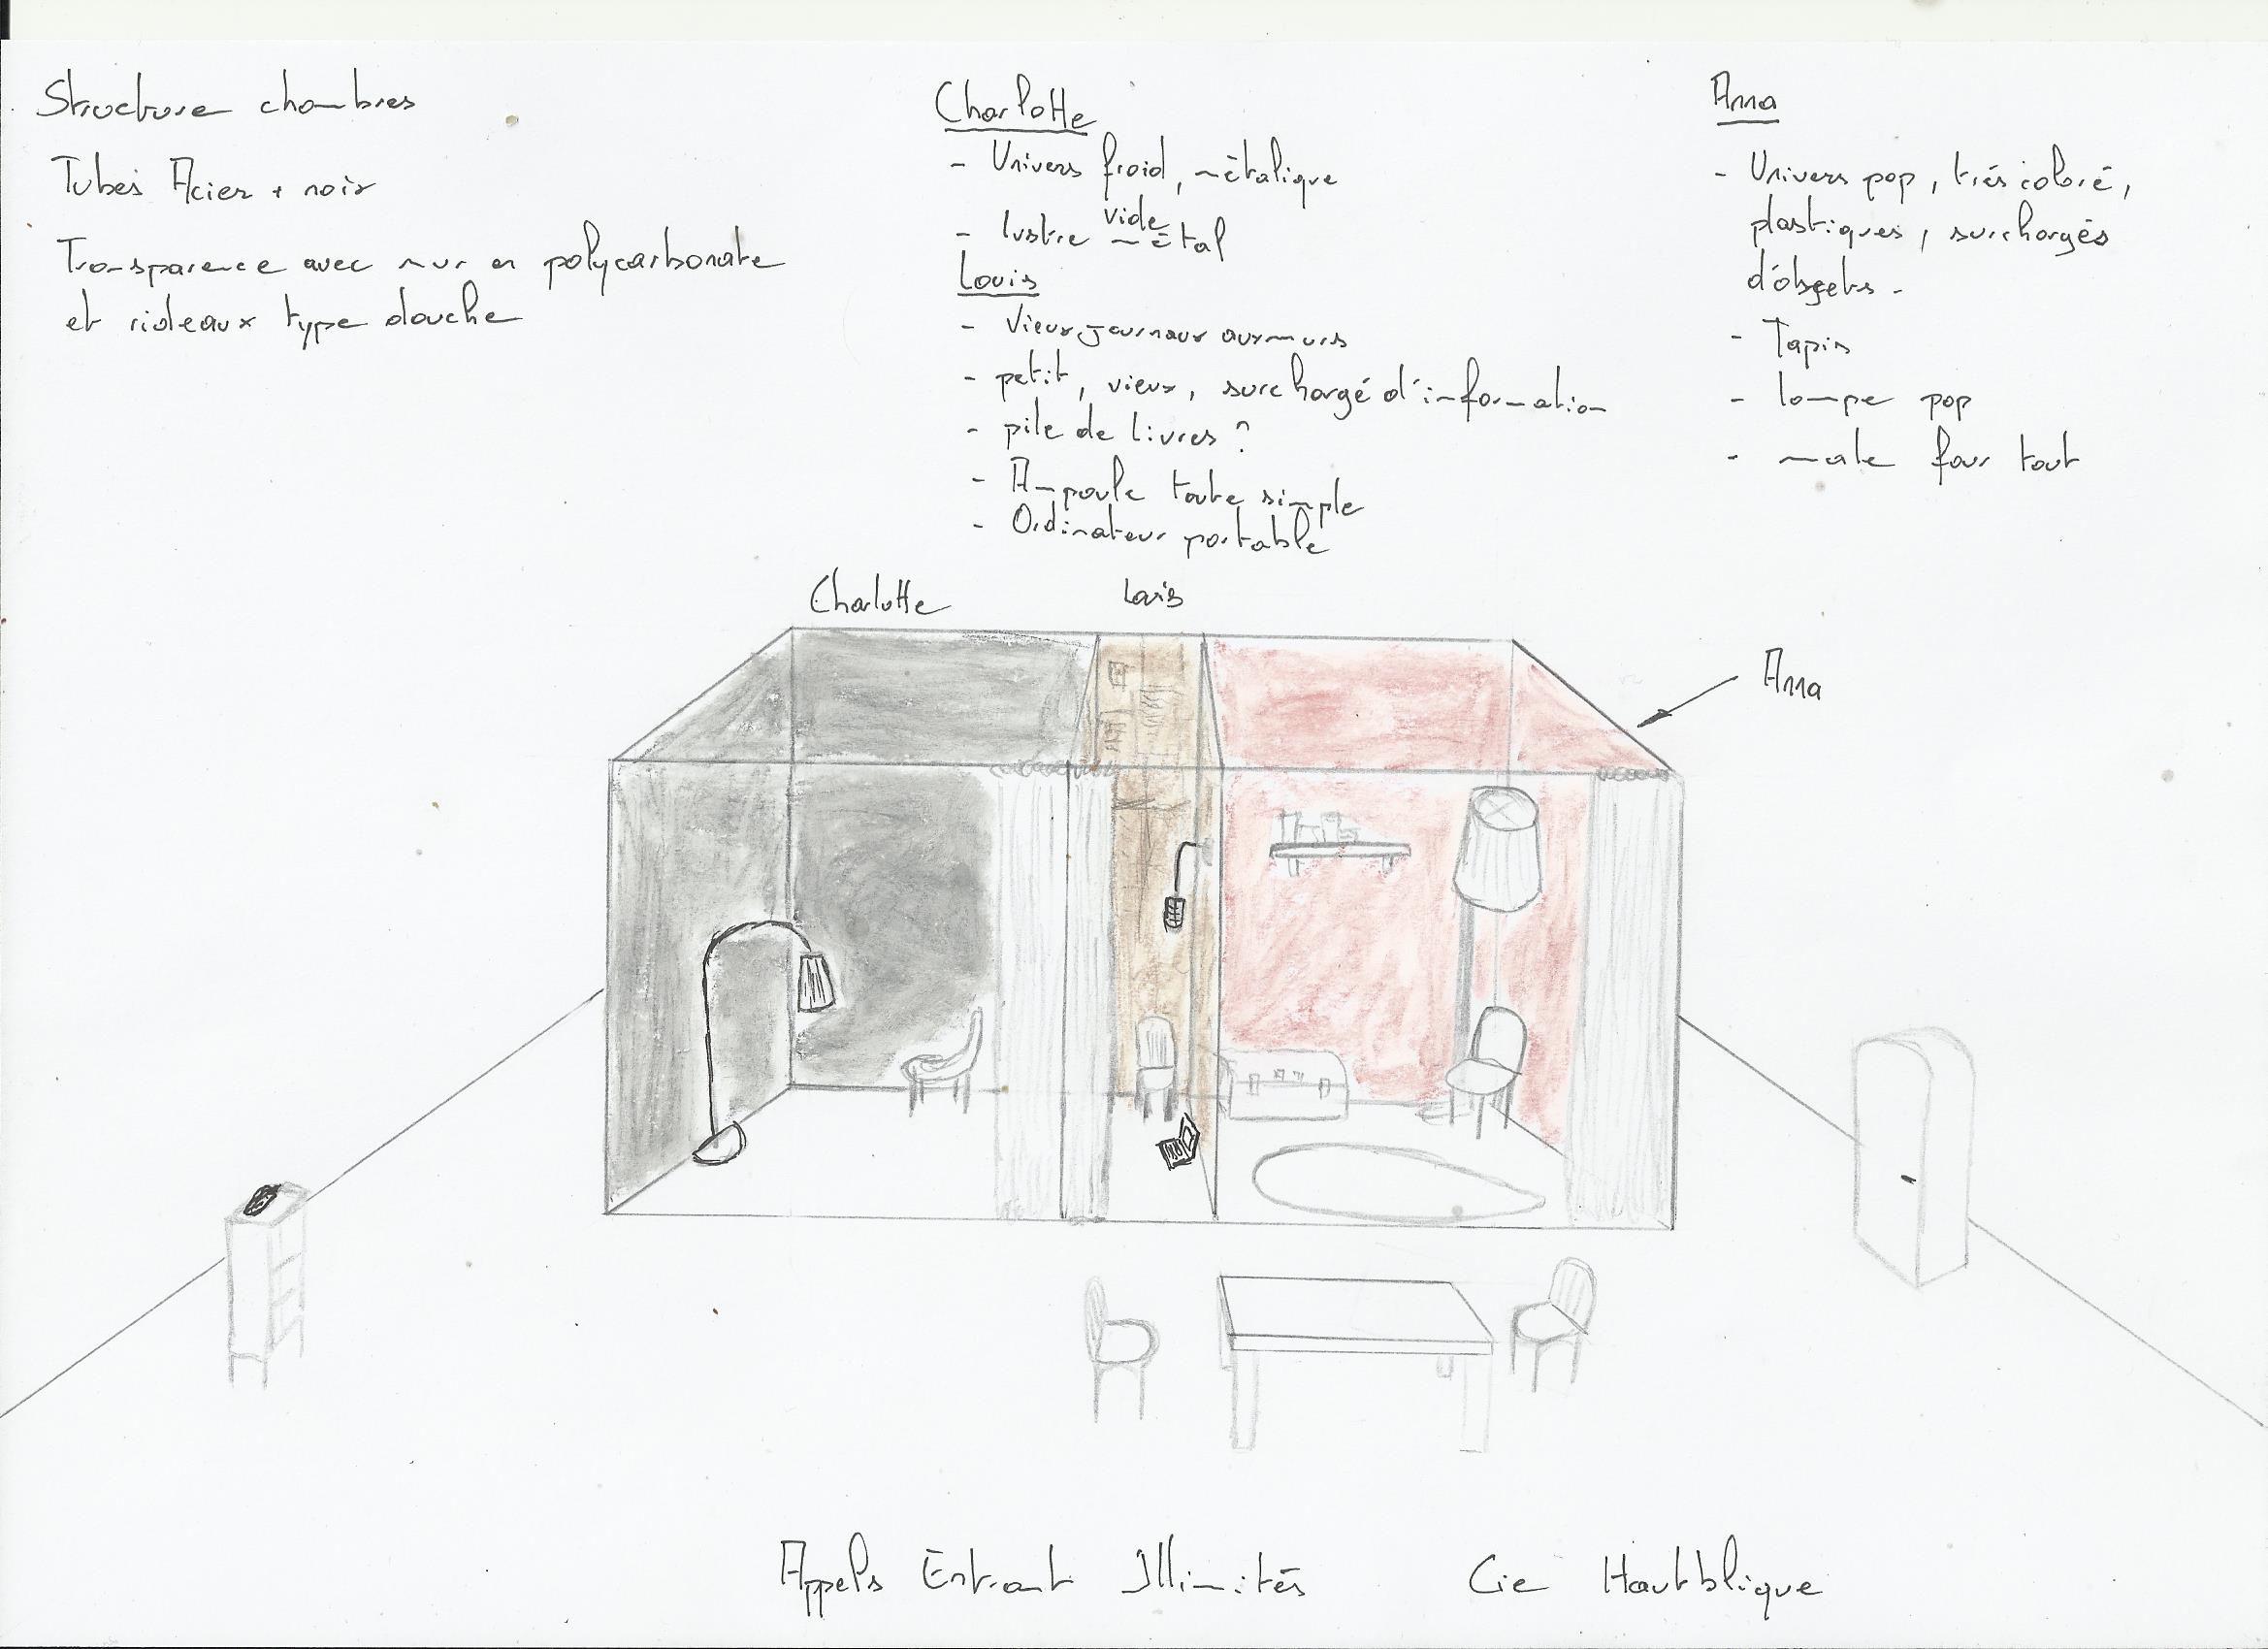 Structure chambres
Tubes Acier + noir
Transparence avec mur en polycarbonate
et rideaux type douche
Charlotte
- Univers froid, mètalique
vide
- lustre mètal
Louis
- Vieux journaux aux murs
- petit, vieux, surchargé d'information
- pile de livres ?
- Ampoule toute simple
- Ordinateur portable
Anna
- Univers pop, très coloré,
plastiques, surchargés
d'objets -
- Tapis
- lampe pop
- male four tout
Charlotte
Louis
Anna
Appels Entrant Illimités
Cie Hautblique